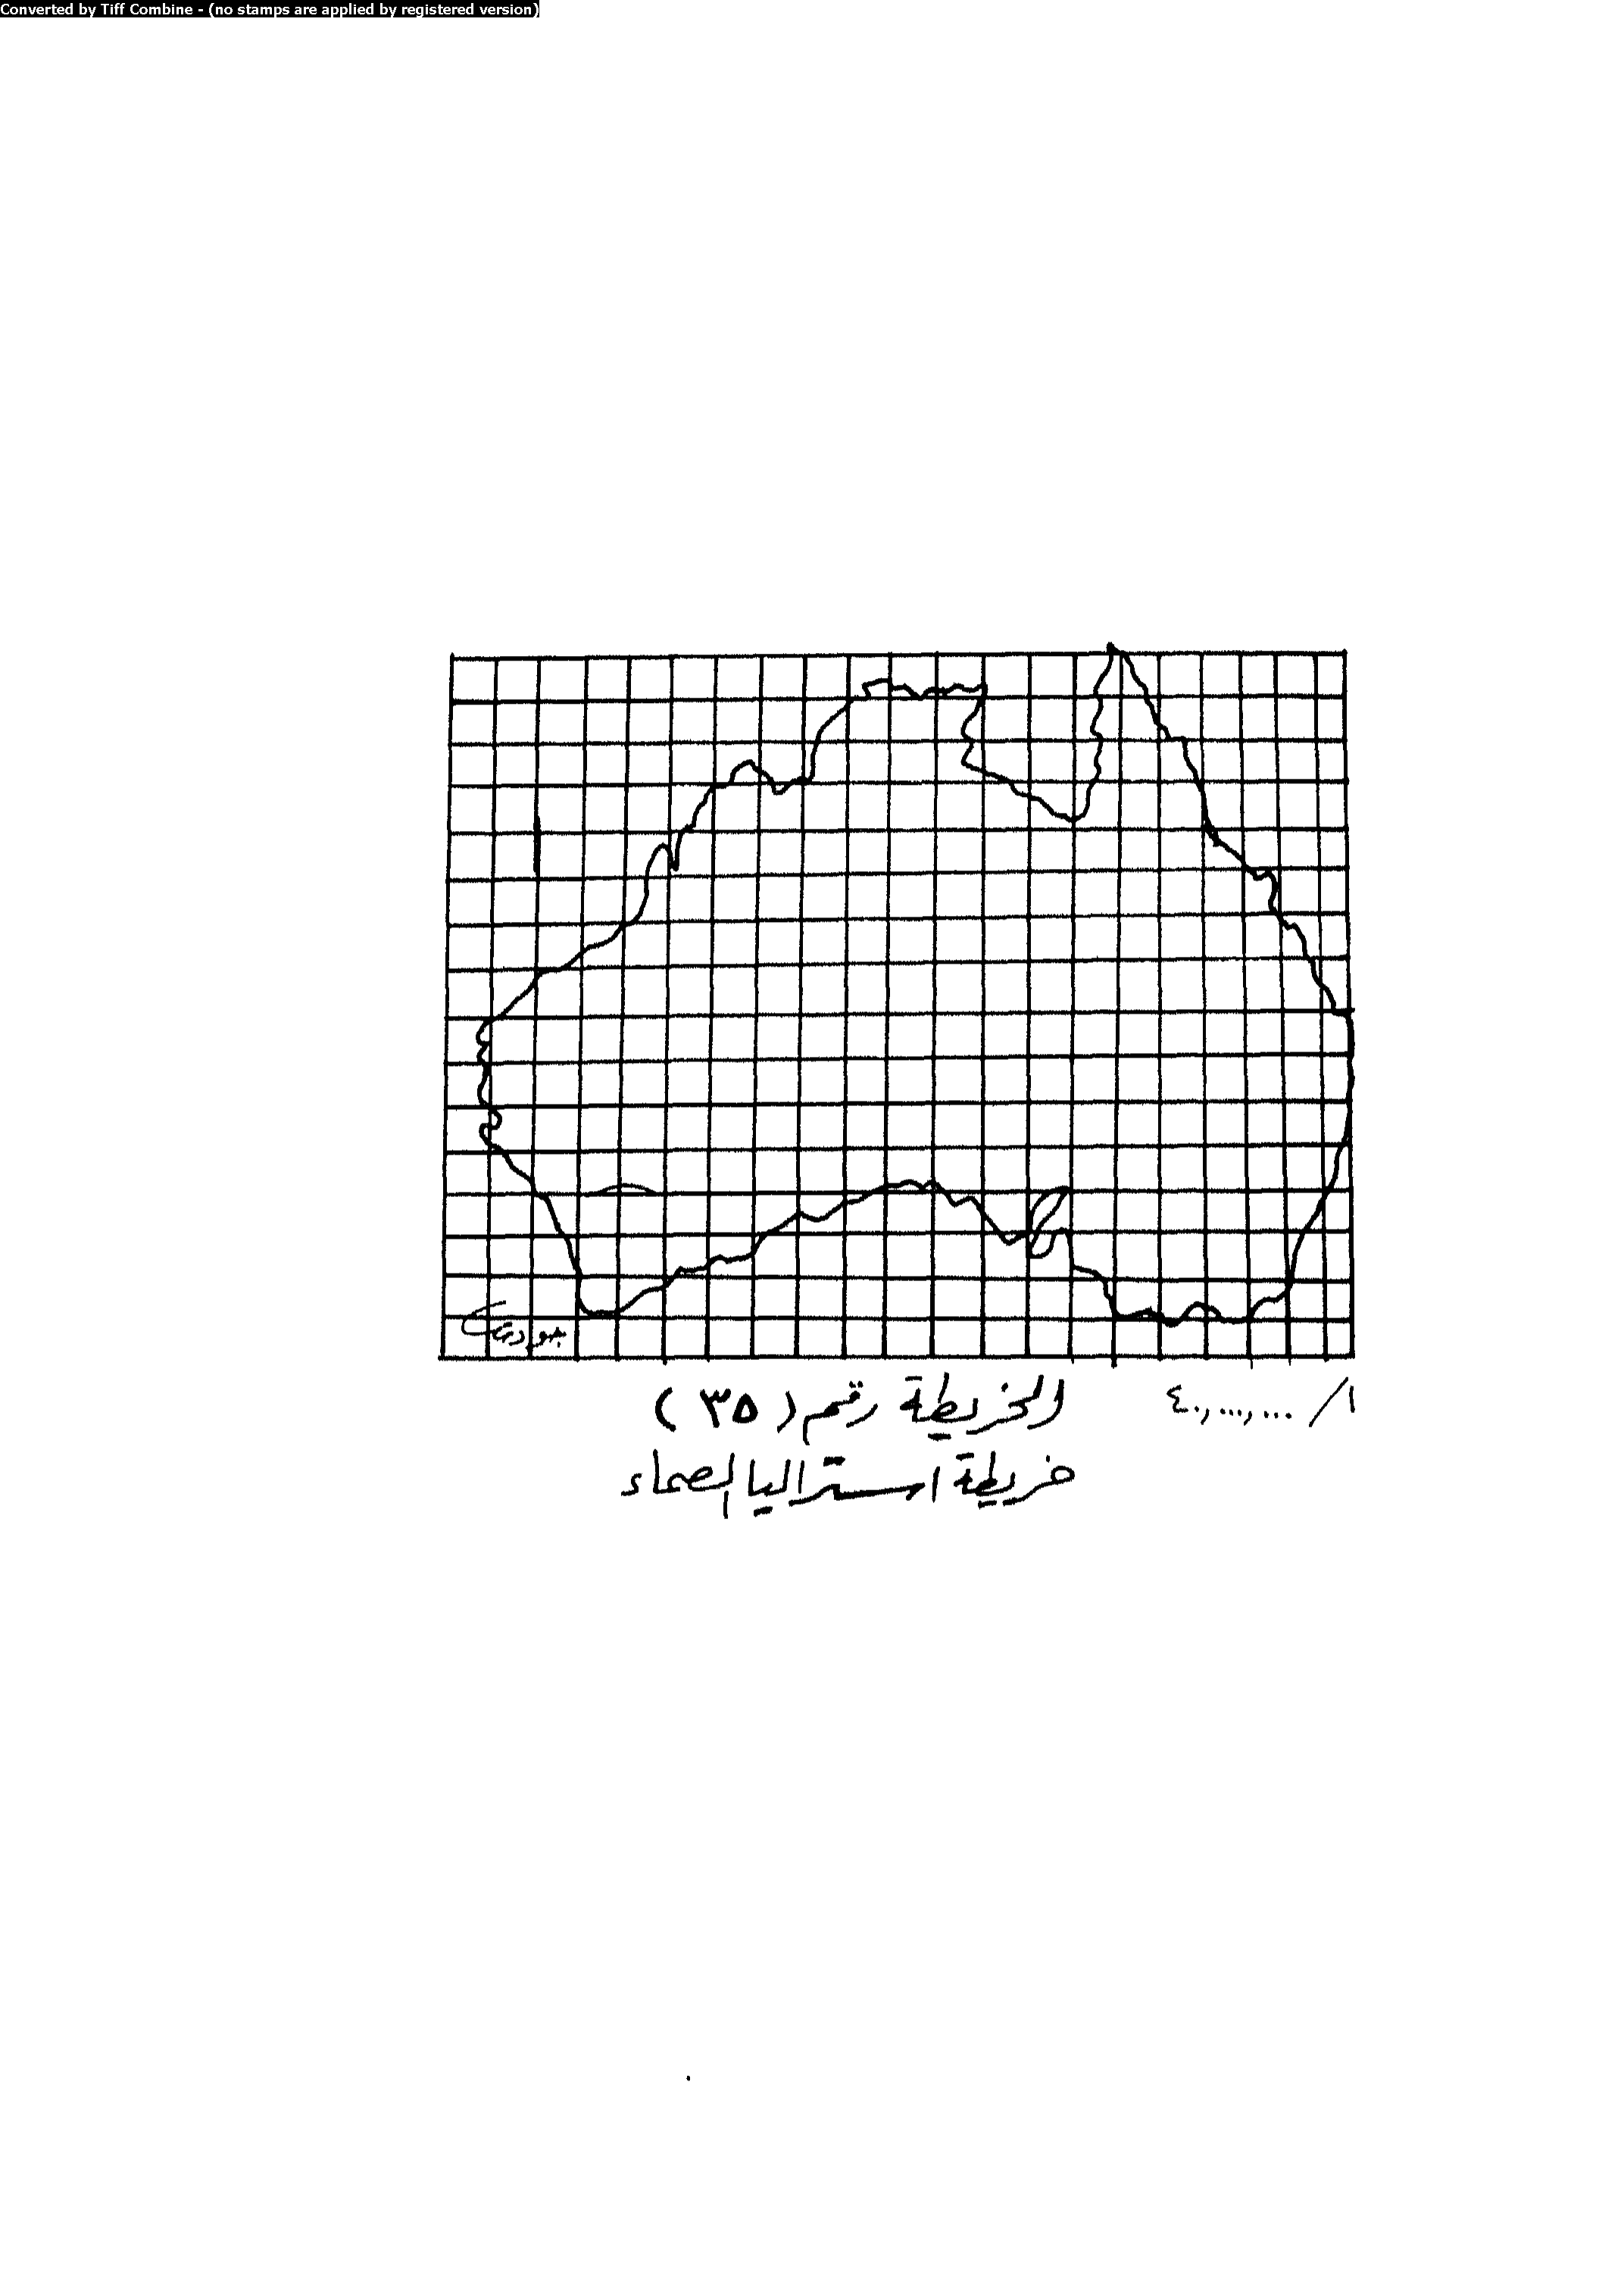 Converted by Tiff Combine - (no stamps are applied by registered version)
الخريطة رقم (٣٥)
١/ ٤٠,٠٠٠,٠٠٠
خريطة استراليا الصماء